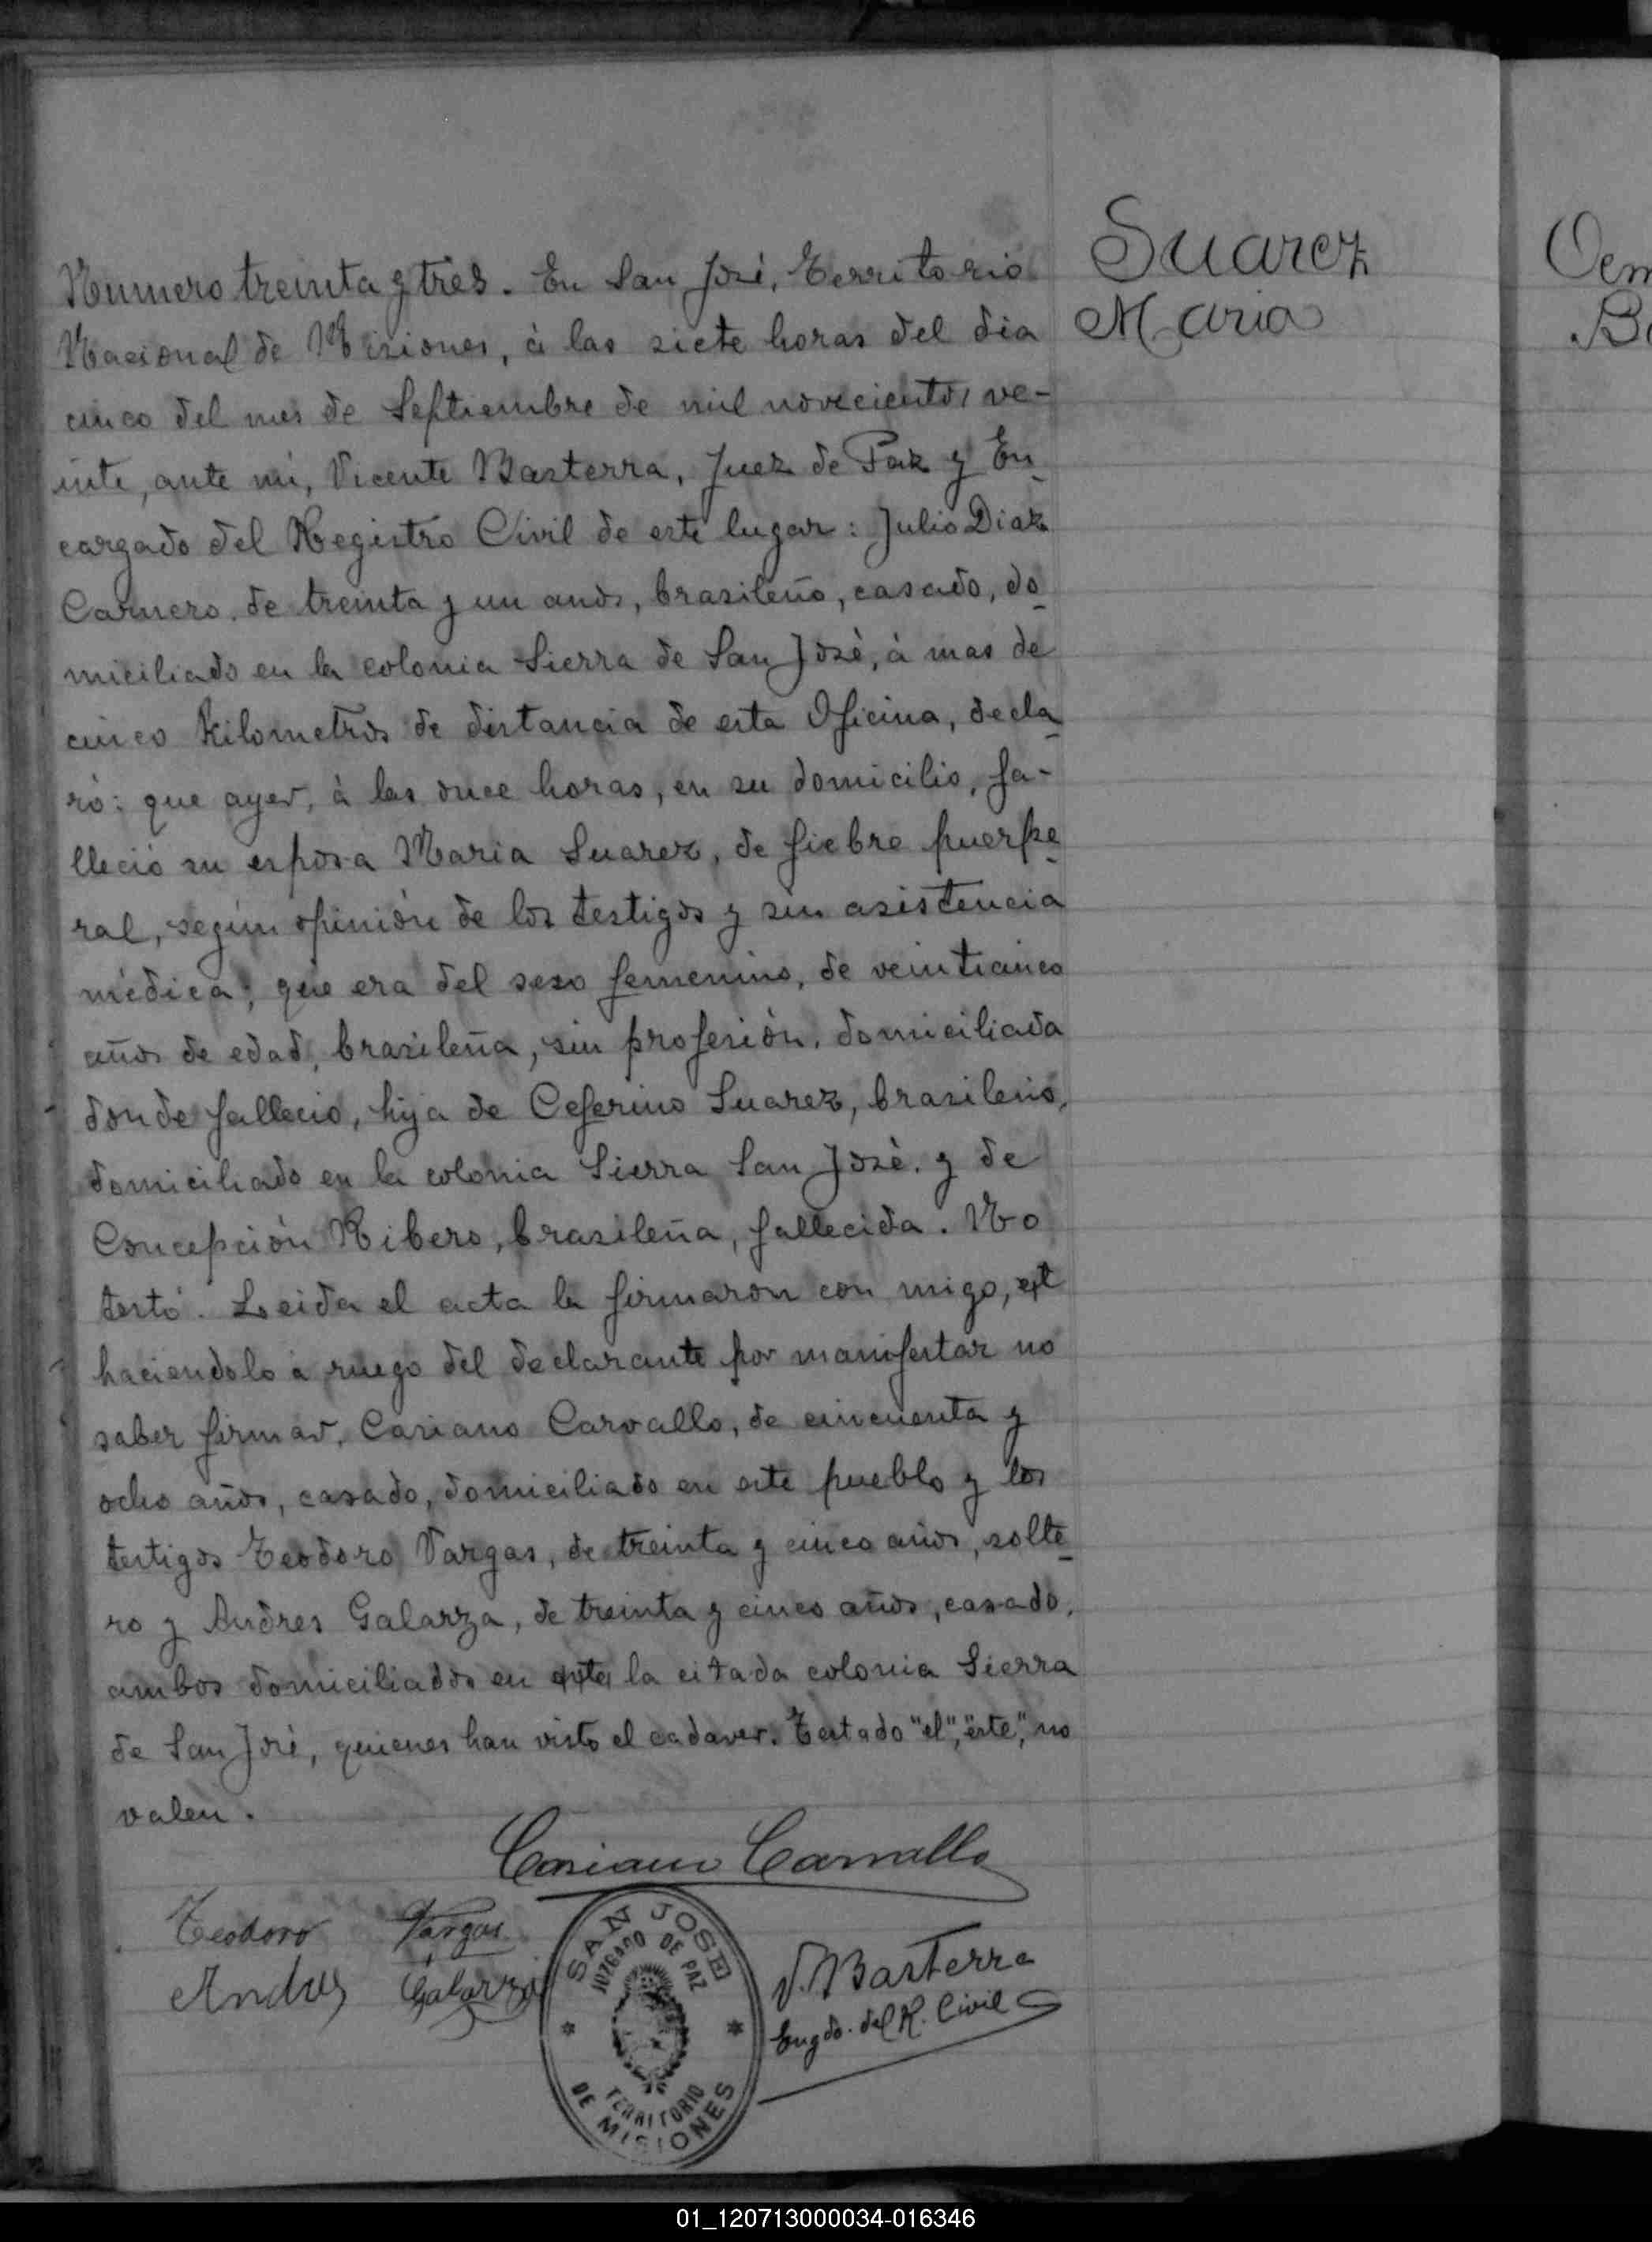 Suarez
Maria
Numero treinta y tres. En San José, Territorio
Nacional de Misiones, à las siete horas del dia
cinco del mes de Septiembre de mil novecientos ve-
inte, ante mi, Vicente Basterra, Juez de Paz y En-
cargado del Registro Civil de este lugar: Julio Diaz
Carnero, de treinta y un anos, brasileño, casado, do-
miciliado en la colonia Sierra de San José, à mas de
cinco Kilometros de distancia de esta Oficina, decla-
ró: que ayer, à las once horas, en su domicilio, fa-
lleció su esposa Maria Suarez, de fiebre puerpe-
ral, según opinión de los testigos y sin asistencia
médica; que era del sexo femenino, de veinticinco
años de edad, brasileña, sin profesión, domiciliada
donde fallecio, hija de Ceferino Suarez, brasileño,
domiciliado en la colonia Sierra San José, y de
Concepción Ribero, brasileña, fallecida. No
testó. Leida el acta la firmaron con migo, el
haciendolo à ruego del declarante por manifestar no
saber firmar, Casiano Carvallo, de cincuenta y
ocho años, casado, domiciliado en este pueblo y los
testigos Teodoro Vargas, de treinta y cinco años, solte-
ro y Andres Galarza, de treinta y cinco años, casado,
ambos domiciliados en este la citada colonia Sierra
de San José, quienes han visto el cadaver. Testado "el", "este", no
valen.
Casiano Carvallo
Teodoro Vargas
Andres Galarza
SAN JOSE
JUZGADO DE PAZ
TERRITORIO
DE MISIONES
V. Basterra
Engdo. del R. Civil
Be
01_120713000034-016346